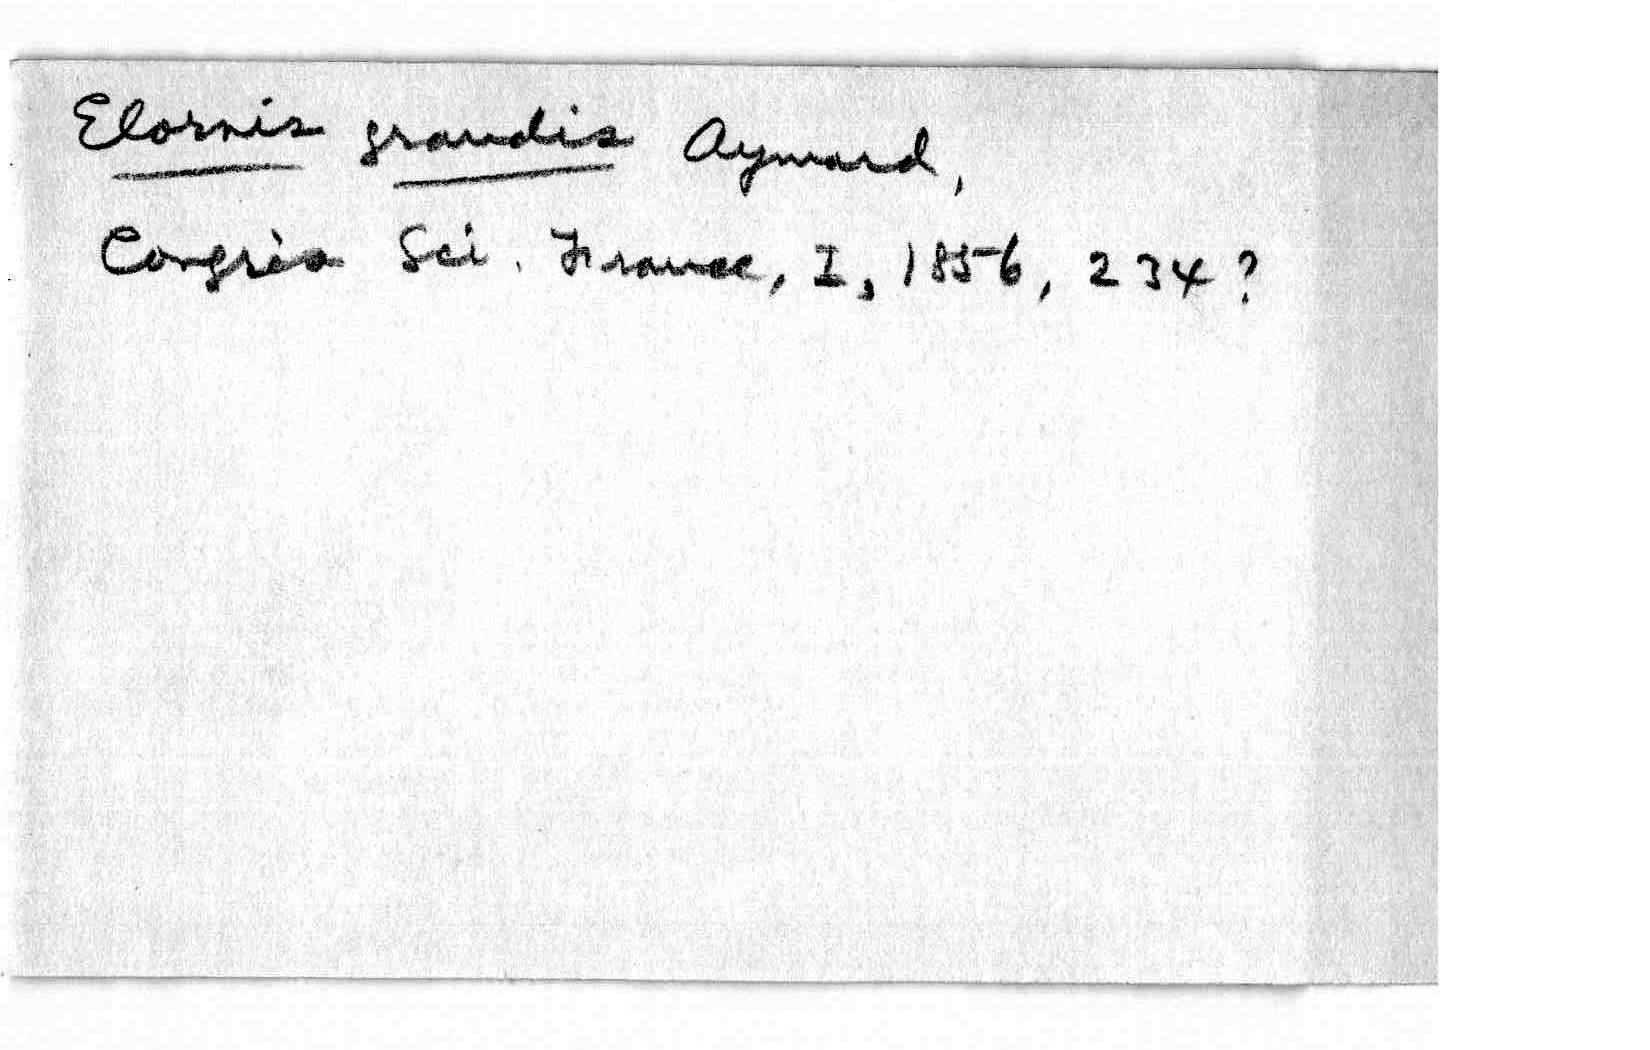 Elornis grandis Aymard,
Congrès Sci. France, I, 1856, 234?